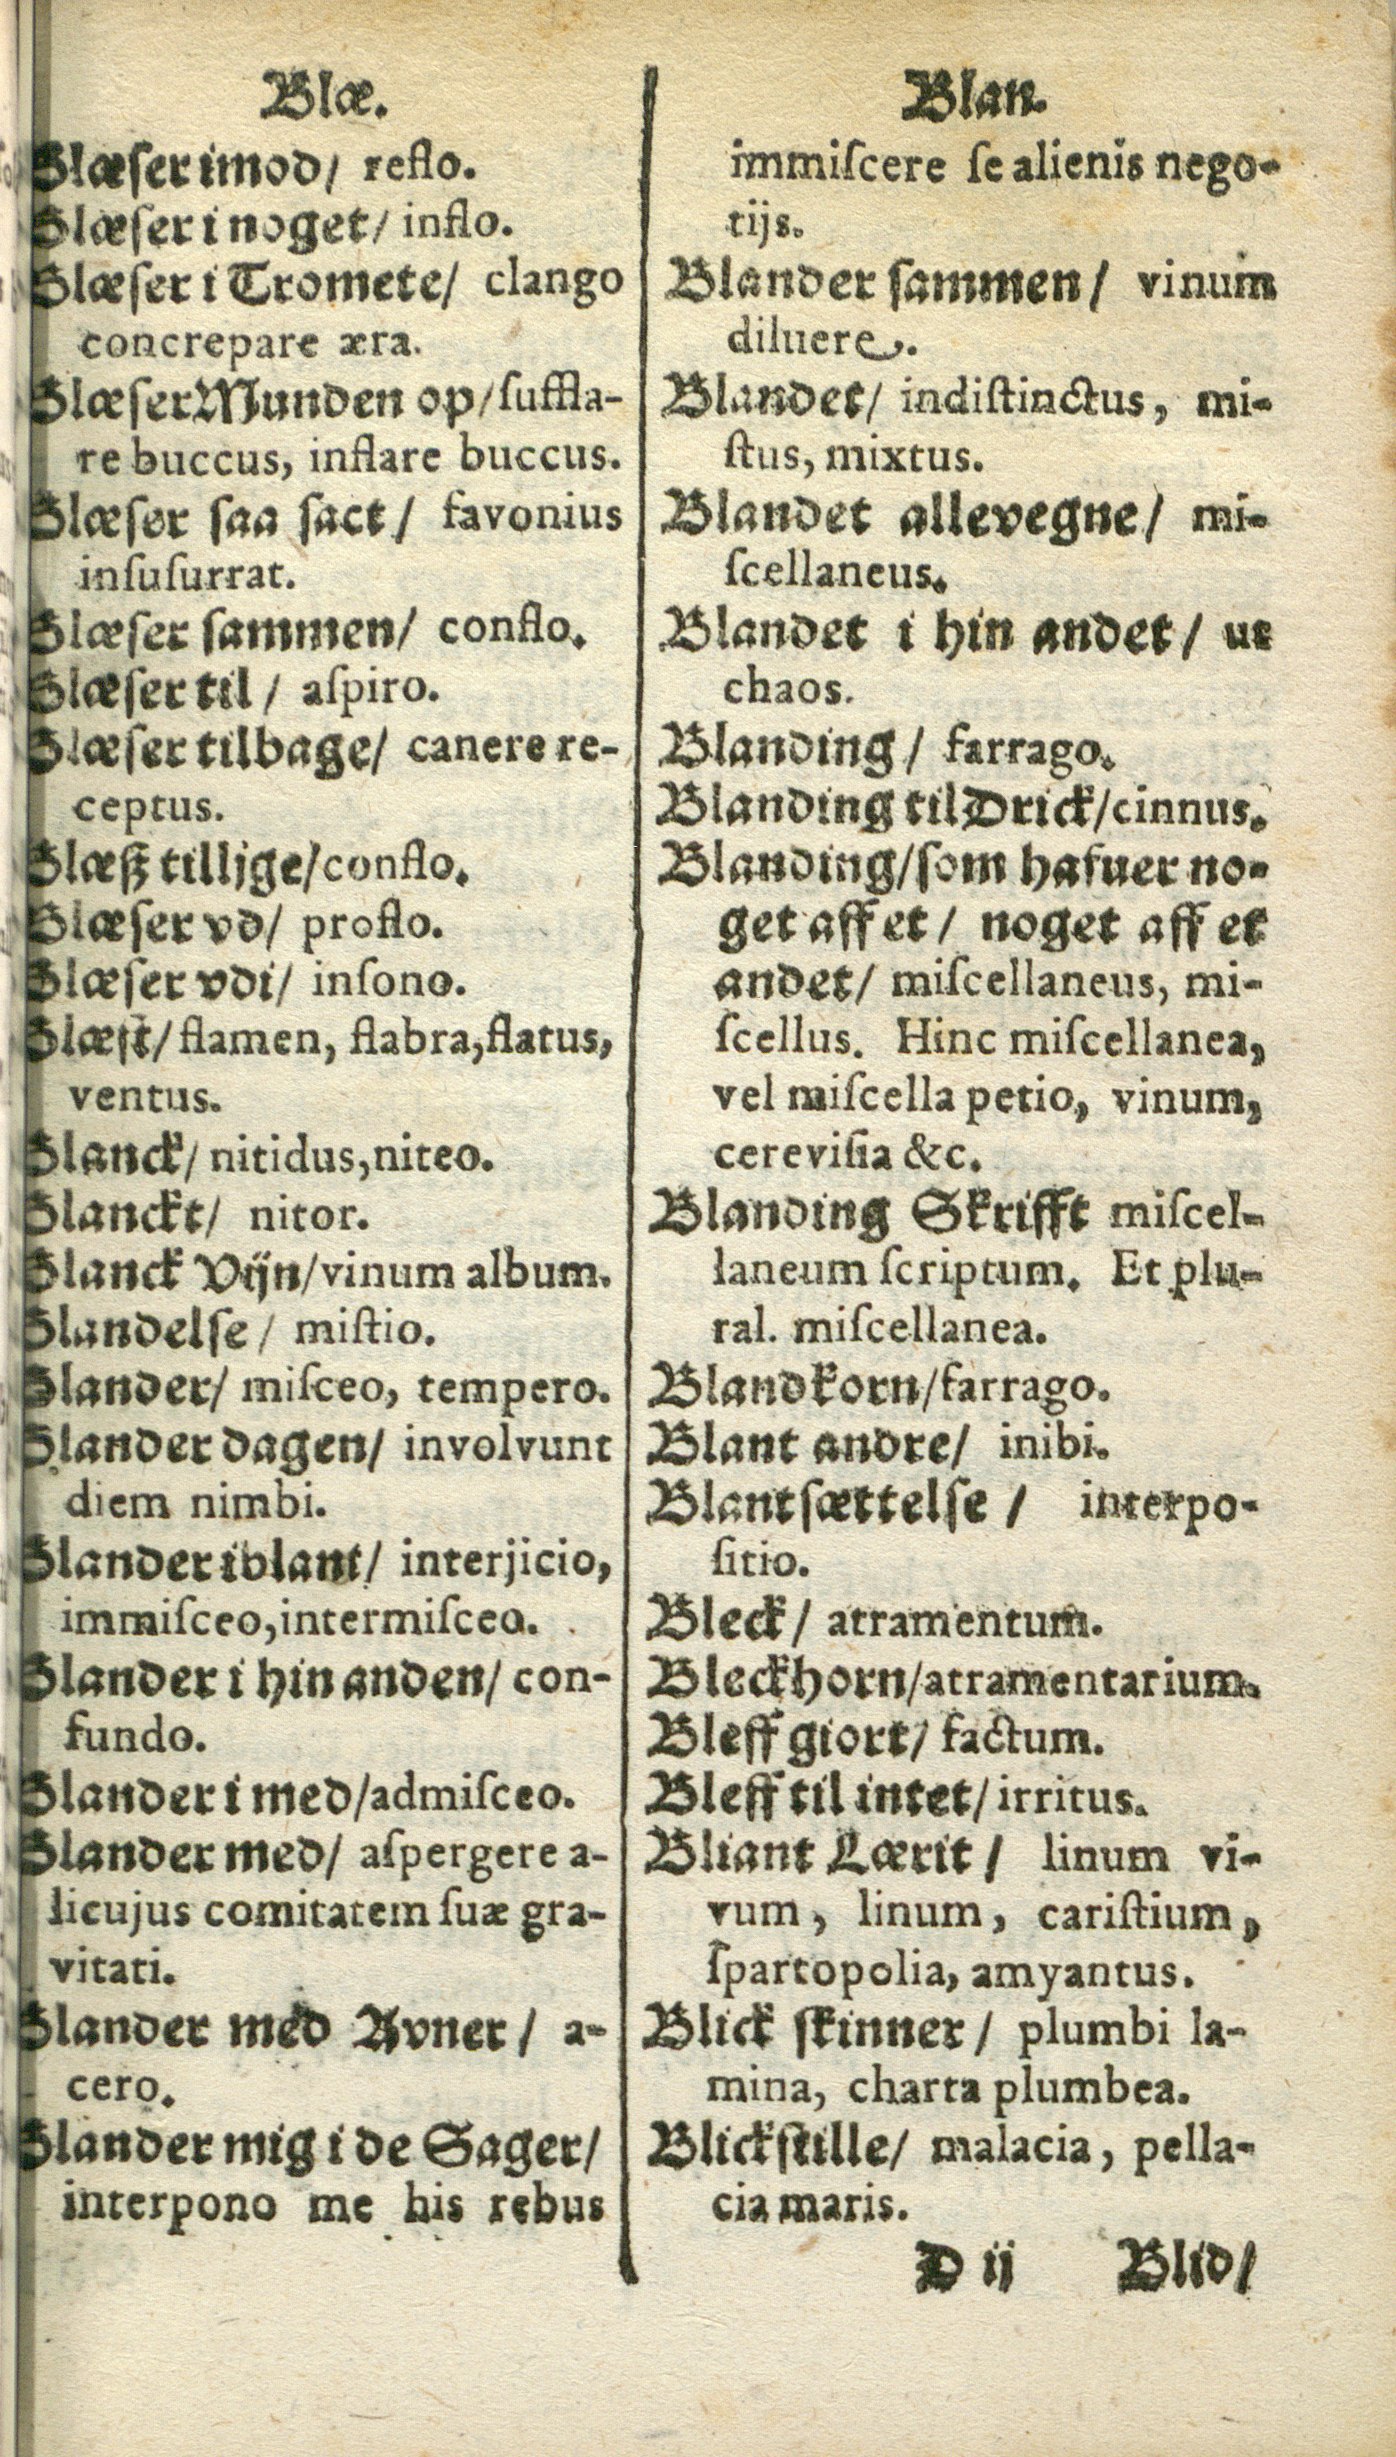 Blæ.
Blæſer imod/ reflo.
Blæſer i noget/ inflo.
Blæſer i Tromete/ clango
concrepare æra.
Blæſer Munden op/ ſuffla-
re buccus, inflare buccus.
Blæſer ſaa ſact/ favonius
inſuſurrat.
Blæſer ſammen/ conflo.
Blæſer til/ aſpiro.
Blæſer tilbage/ canere re-
ceptus.
Blæß tillige/ conflo.
Blæſer vd/ proflo.
Blæſer vdi/ inſono.
Blæſt/ flamen, flabra, flatus,
ventus.
Blanck/ nitidus, niteo.
Blanckt/ nitor.
Blanck Vijn/ vinum album.
Blandelſe/ miſtio.
Blander/ miſceo, tempero.
Blander dagen/ involvunt
diem nimbi.
Blander iblant/ interjicio,
immiſceo, intermiſceo.
Blander i hin anden/ con-
fundo.
Blander i med/ admiſceo.
Blander med/ aſpergere a-
licujus comitatem ſuæ gra-
vitati.
Blander med Avner/ a-
cero.
Blander mig i de Sager/
interpono me his rebus
Blan.
immiſcere ſe alienis nego-
tijs.
Blander ſammen/ vinum
diluere.
Blandet/ indiſtinctus, mi-
ſtus, mixtus.
Blandet allevegne/ mi-
ſcellaneus.
Blandet i hin andet/ ut
chaos.
Blanding/ farrago.
Blanding til Drick/ cinnus.
Blanding/ ſom hafuer no-
get aff et/ noget aff et
andet/ miſcellaneus, mi-
ſcellus. Hinc miſcellanea,
vel miſcella petio, vinum,
cereviſia &c.
Blanding Skrifft miſcel-
laneum ſcriptum. Et plu-
ral. miſcellanea.
Blandkorn/ farrago.
Blant andre/ inibi.
Blantſættelſe/ interpo-
ſitio.
Bleck/ atramentum.
Bleckhorn/ atramentarium.
Bleff giort/ factum.
Bleff til intet/ irritus.
Bliant Lærit/ linum vi-
vum, linum, cariſtium,
ſpartopolia, amyantus.
Blick ſkinner/ plumbi la-
mina, charta plumbea.
Blickſtille/ malacia, pella-
cia maris.
D ij Blid/